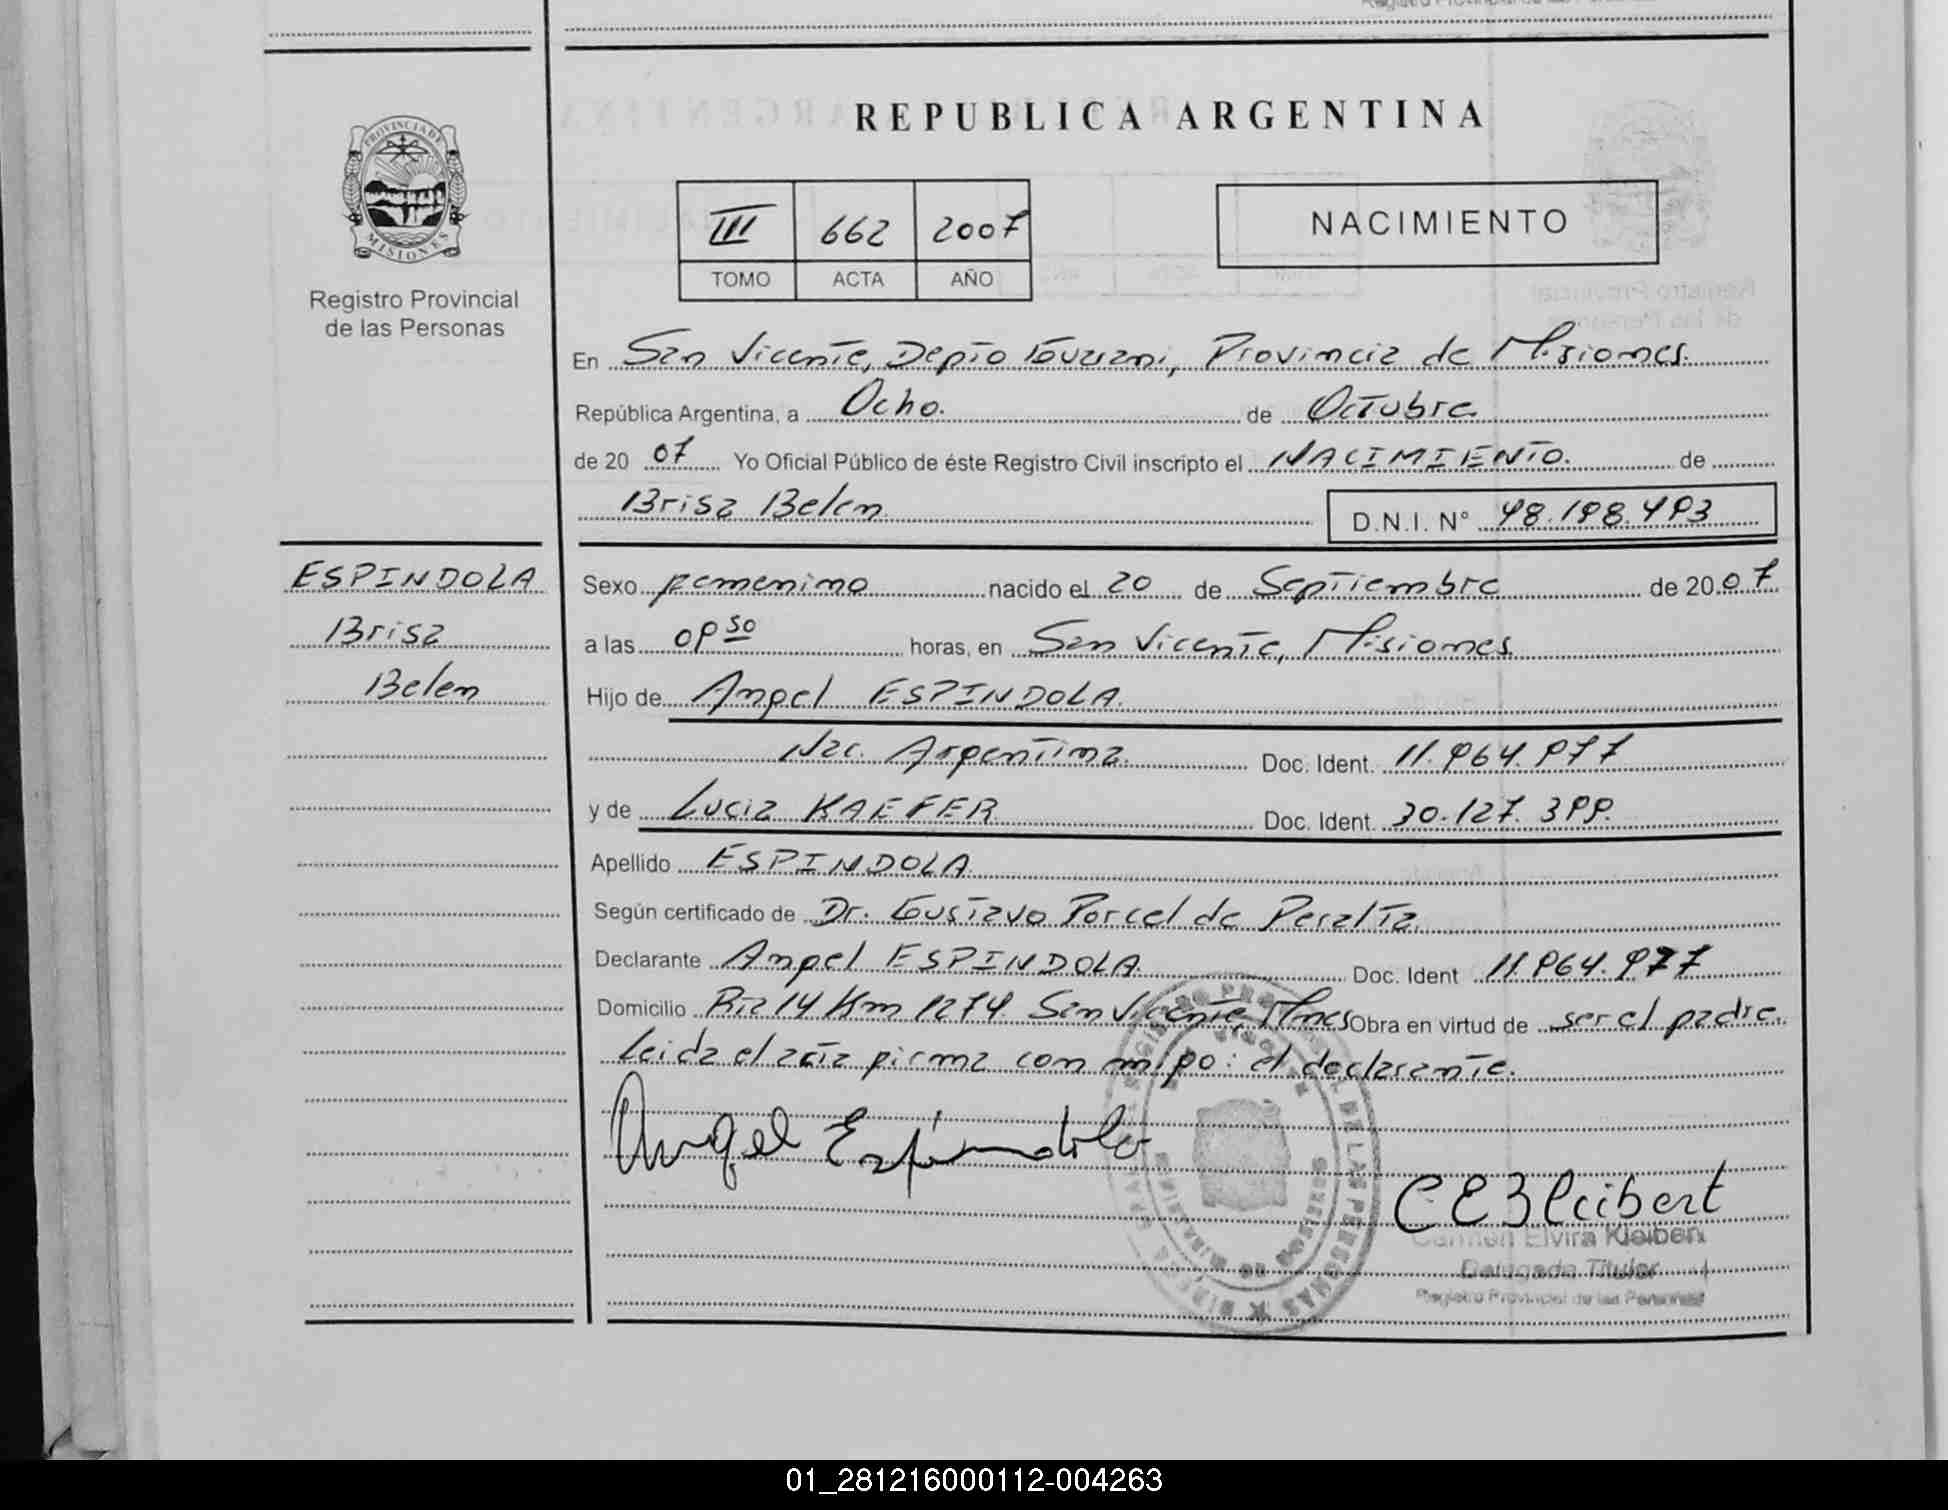 REPUBLICA ARGENTINA
PROVINCIA DE
MISIONES
Registro Provincial
de las Personas
III 662 2007
TOMO ACTA AÑO
NACIMIENTO
En San Vicente, Depto Guarani, Provincia de Misiones.
República Argentina, a Ocho. de Octubre
de 20 07 Yo Oficial Público de éste Registro Civil inscripto el NACIMIENTO. de
Brisa Belen D.N.I. Nº 48.198.493
ESPINDOLA
Brisa
Belen
Sexo femenino nacido el 20 de Septiembre de 20 07
a las 09 50 horas, en San Vicente, Misiones
Hijo de Angel ESPINDOLA.
Nac. Argentina. Doc. Ident. 11.964.977
y de Lucia KAEFER Doc. Ident. 30.127.399.
Apellido ESPINDOLA
Según certificado de Dr. Gustavo Porcel de Peralta.
Declarante Angel ESPINDOLA Doc. Ident 11.964.977
Domicilio Rta 14 Km 1274. San Vicente, Mnes Obra en virtud de ser el padre.
Leida el acta firma con migo: el declarante.
Angel Espindola
CEKleibert
Carmen Elvira Kleibert
Delegada Titular
Registro Provincial de las Personas
01_281216000112-004263